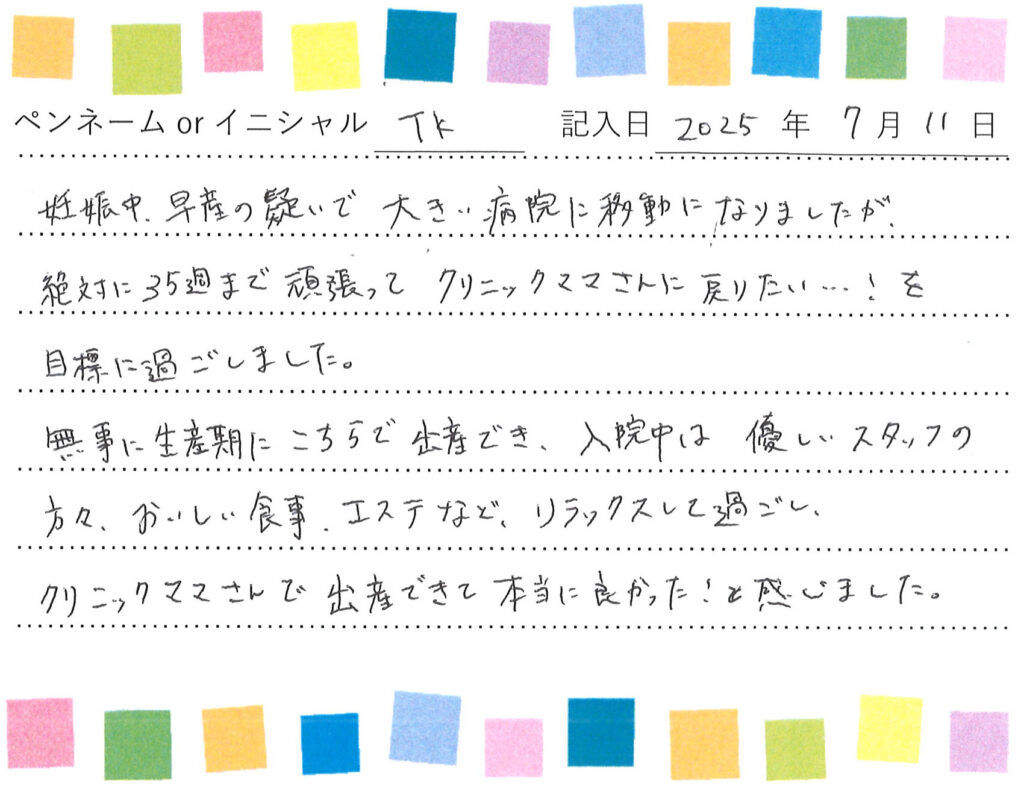 ペンネーム or イニシャル TK 記入日 2025 年 7 月 11 日
妊娠中、早産の疑いで 大きい病院に移動になりましたが、
絶対に35週まで頑張って クリニックママさんに戻りたい…!を
目標に過ごしました。
無事に生産期にこちらで出産でき、入院中は 優しいスタッフの
方々、おいしい食事、エステなど、リラックスして過ごし、
クリニックママさんで出産できて本当に良かった!と感じました。